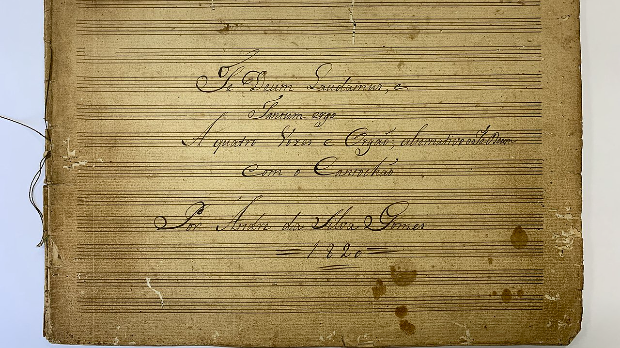 Te Deum Laudamus, e
Tantum ergo
A quatro Vozes e Orgaõ, alternativo este Deum
com o Cantochaõ
Por André da Silva Gomes
1820